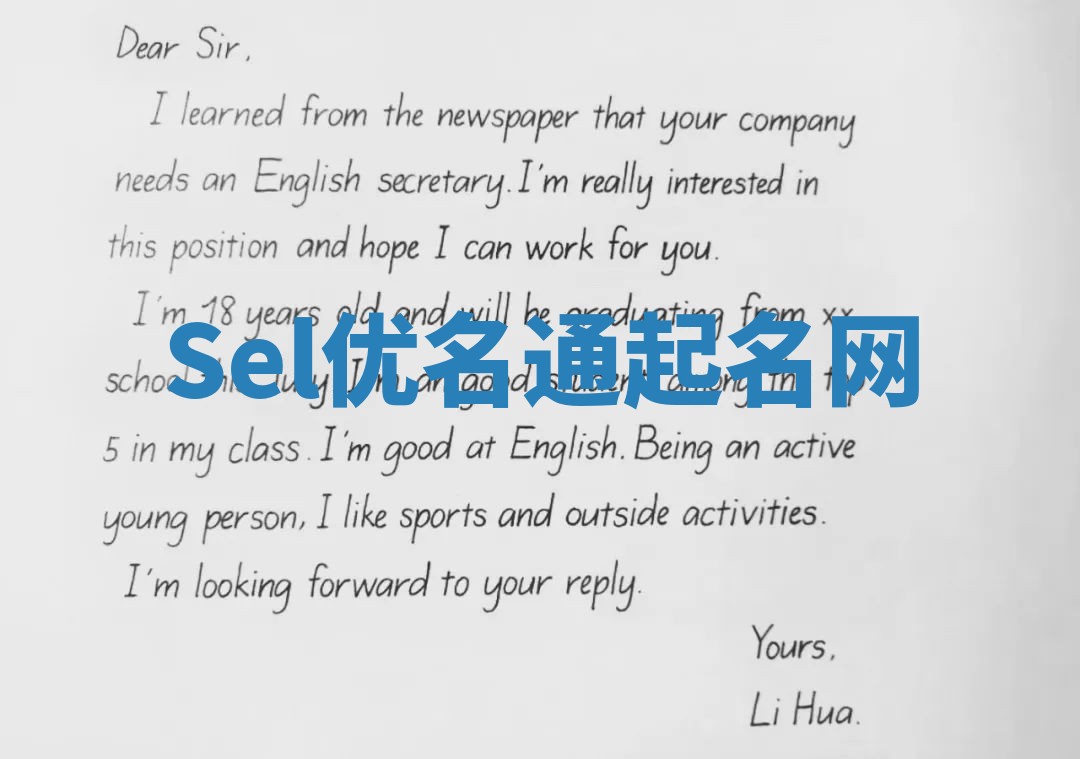 Dear Sir,
I learned from the newspaper that your company
needs an English secretary. I'm really interested in
this position and hope I can work for you.
I'm 18 years old and will be graduating from xx
Sel优名通起名网
school this July. I'm a good student among the top
5 in my class. I'm good at English. Being an active
young person, I like sports and outside activities.
I'm looking forward to your reply.
Yours,
Li Hua.